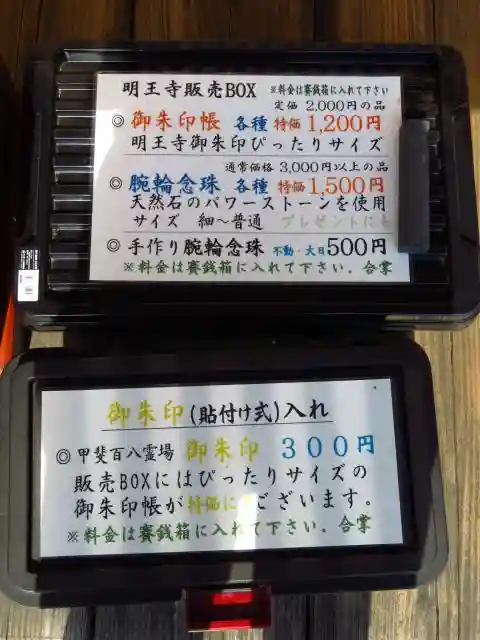 明王寺販売BOX ※料金は賽銭箱に入れて下さい
定価 2,000円の品
◎ 御朱印帳 各種 特価 1,200円
明王寺御朱印ぴったりサイズ
通常価格 3,000円以上の品
◎ 腕輪念珠 各種 特価 1,500円
天然石のパワーストーンを使用
サイズ 細〜普通 プレゼントにも
◎ 手作り腕輪念珠 不動・大日 500円
※料金は賽銭箱に入れて下さい。合掌
御朱印(貼付け式)入れ
◎ 甲斐百八霊場 御朱印 300円
販売BOXにはぴったりサイズの
御朱印帳が特価にございます。
※料金は賽銭箱に入れて下さい。合掌